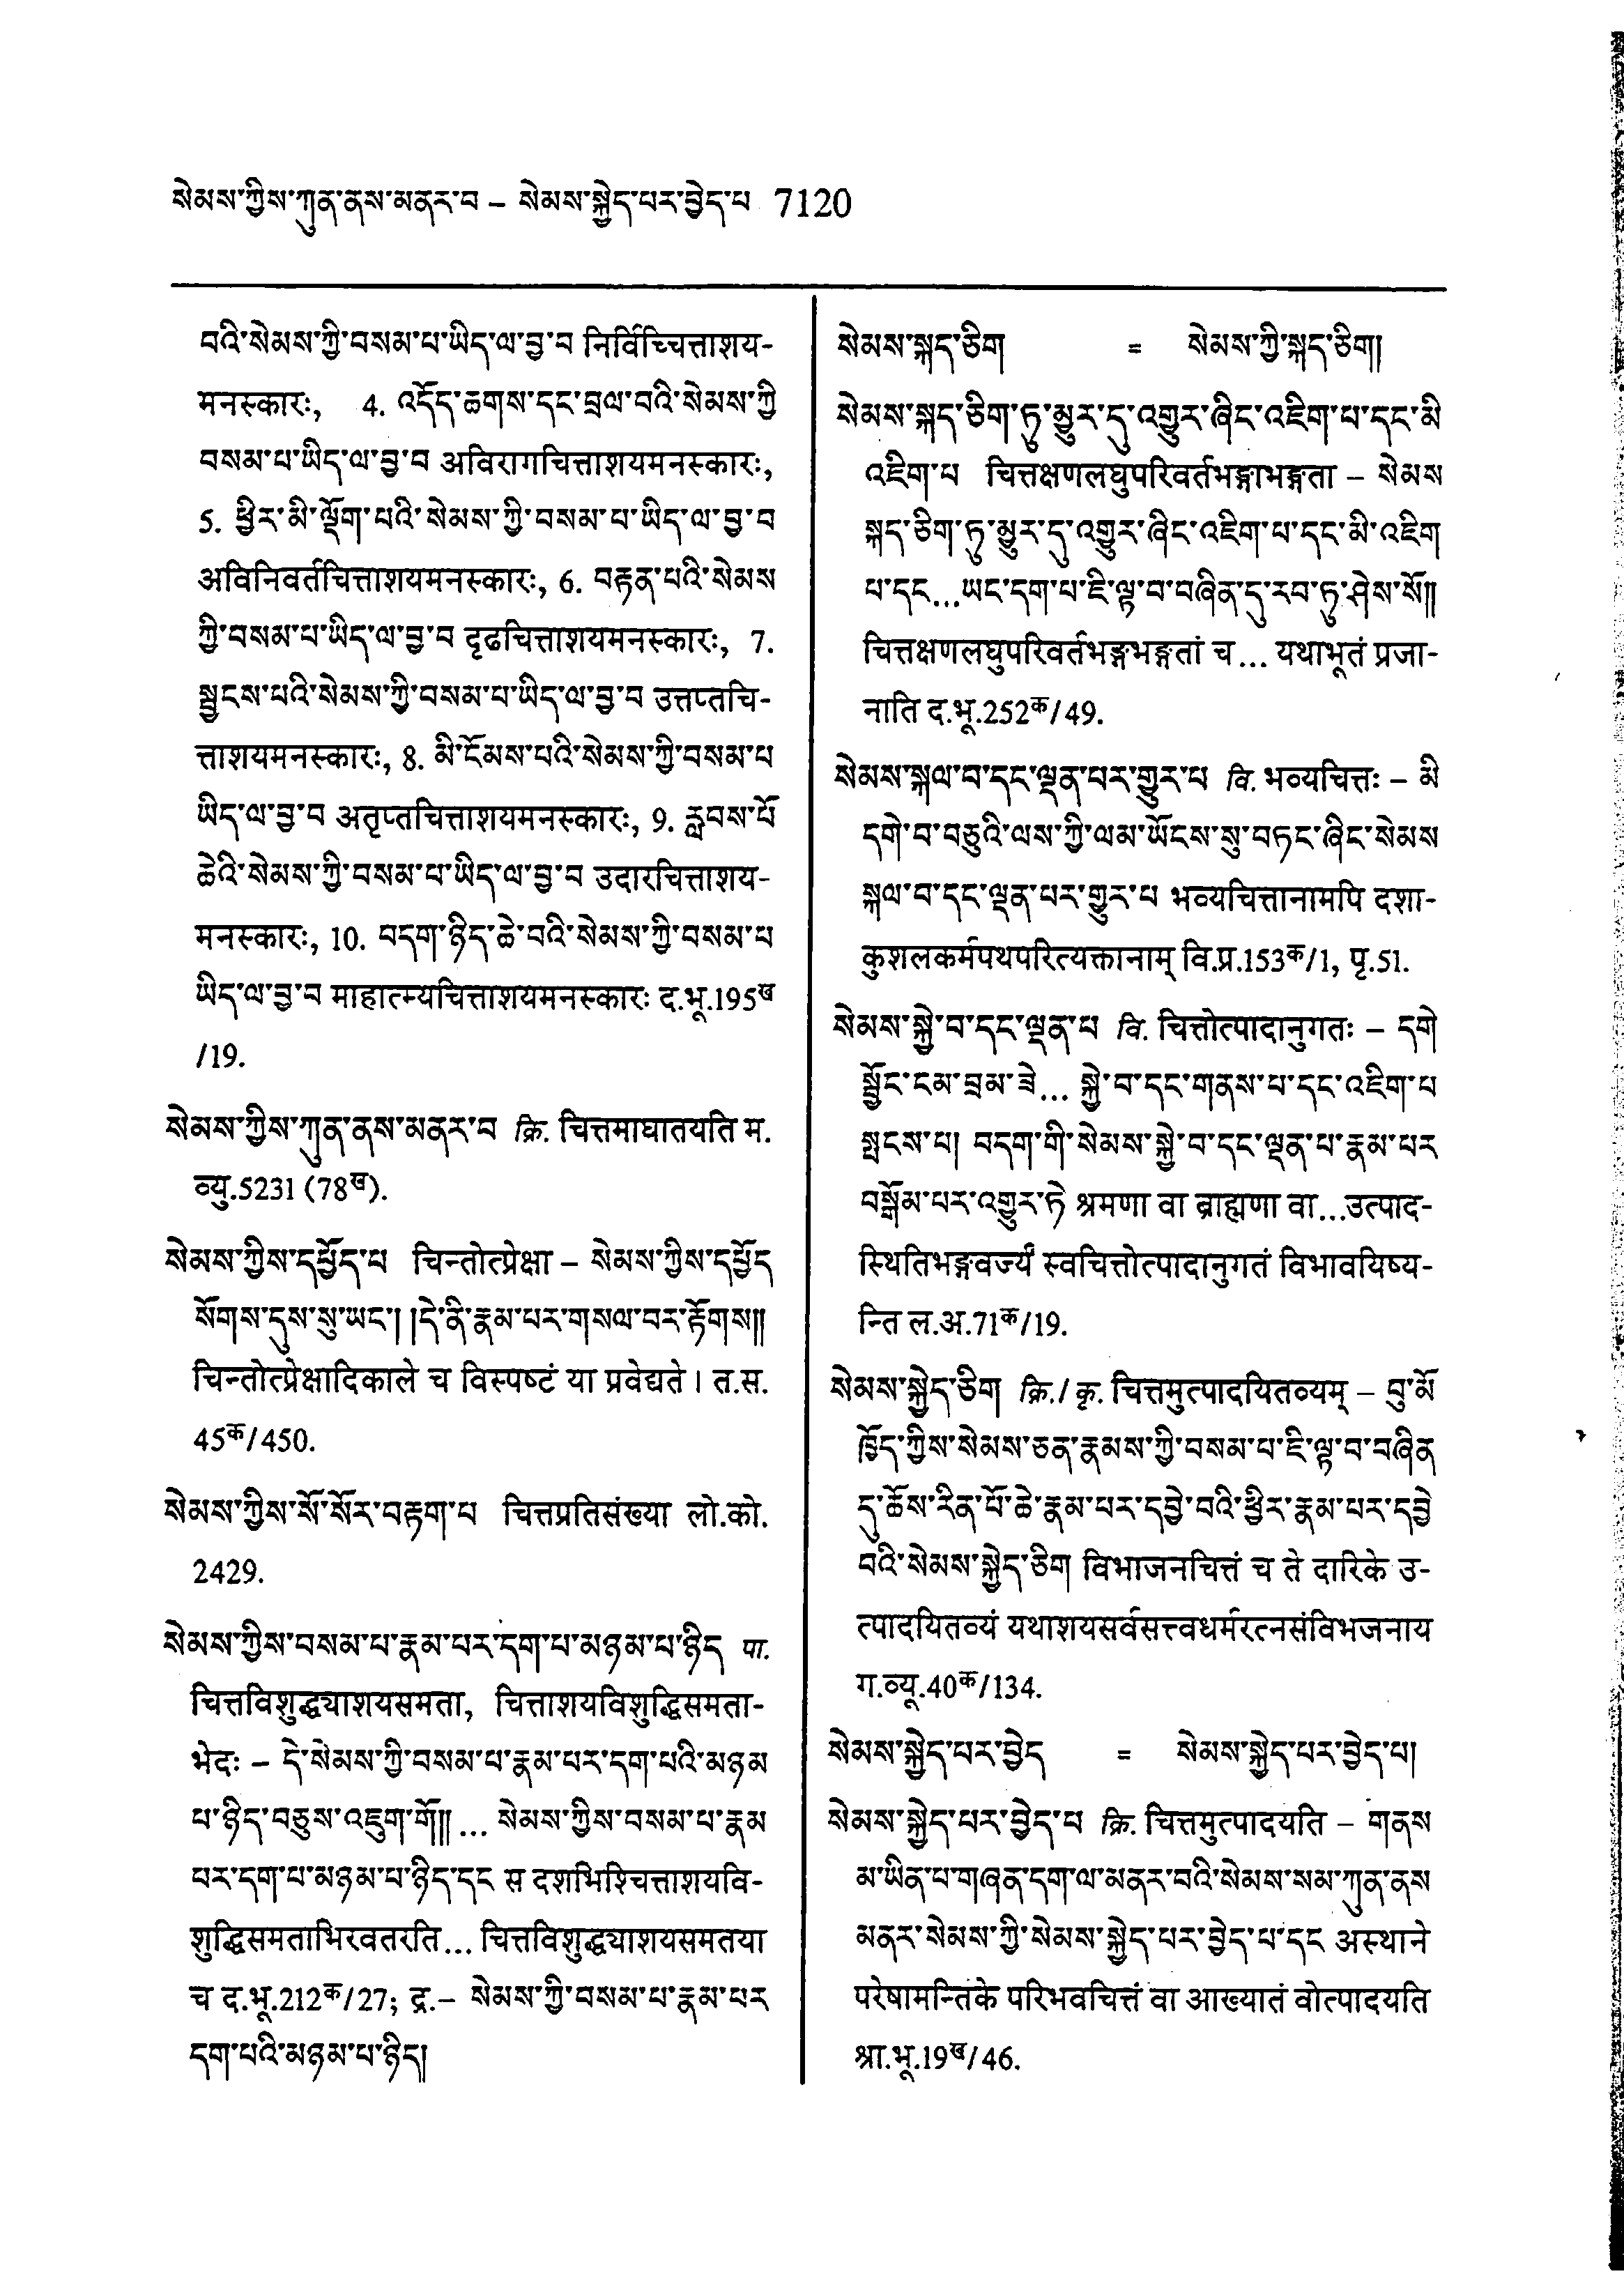 སེམས་ཀྱིས་ཀུན་ནས་མནར་བ – སེམས་སྐྱེད་པར་བྱེད་པ 7120
བའི་སེམས་ཀྱི་བསམ་པ་ཡིད་ལ་བྱ་བ निर्विच्चित्ताशय-
मनस्कारः, 4. འདོད་ཆགས་དང་བྲལ་བའི་སེམས་ཀྱི
བསམ་པ་ཡིད་ལ་བྱ་བ अविरागचित्ताशयमनस्कारः,
5. ཕྱིར་མི་ལྡོག་པའི་སེམས་ཀྱི་བསམ་པ་ཡིད་ལ་བྱ་བ
अविनिवर्तचित्ताशयमनस्कारः, 6. བརྟན་པའི་སེམས
ཀྱི་བསམ་པ་ཡིད་ལ་བྱ་བ दृढचित्ताशयमनस्कारः, 7.
སྦྱངས་པའི་སེམས་ཀྱི་བསམ་པ་ཡིད་ལ་བྱ་བ उत्तप्तचि-
त्ताशयमनस्कारः, 8. མི་ངོམས་པའི་སེམས་ཀྱི་བསམ་པ
ཡིད་ལ་བྱ་བ अतृप्तचित्ताशयमनस्कारः, 9. རླབས་པོ
ཆེའི་སེམས་ཀྱི་བསམ་པ་ཡིད་ལ་བྱ་བ उदारचित्ताशय-
मनस्कारः, 10. བདག་ཉིད་ཆེ་བའི་སེམས་ཀྱི་བསམ་པ
ཡིད་ལ་བྱ་བ माहात्म्यचित्ताशयमनस्कारः द.भू.195ख
/19.
སེམས་ཀྱིས་ཀུན་ནས་མནར་བ क्रि. चित्तमाघातयति म.
व्यु.5231 (78ख).
སེམས་ཀྱིས་དཔྱོད་པ चिन्तोत्प्रेक्षा – སེམས་ཀྱིས་དཔྱོད
སོགས་དུས་སུ་ཡང་། །དེ་ནི་རྣམ་པར་གསལ་བར་རྟོགས༎
चिन्तोत्प्रेक्षादिकाले च विस्पष्टं या प्रवेद्यते । त.स.
45क/450.
སེམས་ཀྱིས་སོ་སོར་བརྟག་པ चित्तप्रतिसंख्या लो.को.
2429.
སེམས་ཀྱིས་བསམ་པ་རྣམ་པར་དག་པ་མཉམ་པ་ཉིད पा.
चित्तविशुद्ध्याशयसमता, चित्ताशयविशुद्धिसमता-
भेदः – དེ་སེམས་ཀྱི་བསམ་པ་རྣམ་པར་དག་པའི་མཉམ
པ་ཉིད་བཅུས་འཇུག་གོ༎ ... སེམས་ཀྱིས་བསམ་པ་རྣམ
པར་དག་པ་མཉམ་པ་ཉིད་དང स दशभिश्चित्ताशयवि-
शुद्धिसमताभिरवतरति... चित्तविशुद्ध्याशयसमतया
च द.भू.212क/27; द्र.– སེམས་ཀྱི་བསམ་པ་རྣམ་པར
དག་པའི་མཉམ་པ་ཉིད།
སེམས་སྐད་ཅིག = སེམས་ཀྱི་སྐད་ཅིག།
སེམས་སྐད་ཅིག་ཏུ་མྱུར་དུ་འགྱུར་ཞིང་འཇིག་པ་དང་མི
འཇིག་པ चित्तक्षणलघुपरिवर्तभङ्गाभङ्गता – སེམས
སྐད་ཅིག་ཏུ་མྱུར་དུ་འགྱུར་ཞིང་འཇིག་པ་དང་མི་འཇིག
པ་དང...ཡང་དག་པ་ཇི་ལྟ་བ་བཞིན་དུ་རབ་ཏུ་ཤེས་སོ༎
चित्तक्षणलघुपरिवर्तभङ्गभङ्गतां च... यथाभूतं प्रजा-
नाति द.भू.252क/49.
སེམས་སྐལ་བ་དང་ལྡན་པར་གྱུར་པ वि. भव्यचित्तः – མི
དགེ་བ་བཅུའི་ལས་ཀྱི་ལམ་ཡོངས་སུ་བཏང་ཞིང་སེམས
སྐལ་བ་དང་ལྡན་པར་གྱུར་པ भव्यचित्तानामपि दशा-
कुशलकर्मपथपरित्यक्तानाम् वि.प्र.153क/1, पृ.51.
སེམས་སྐྱེ་བ་དང་ལྡན་པ वि. चित्तोत्पादानुगतः – དགེ
སྦྱོང་ངམ་བྲམ་ཟེ... སྐྱེ་བ་དང་གནས་པ་དང་འཇིག་པ
སྤངས་པ། བདག་གི་སེམས་སྐྱེ་བ་དང་ལྡན་པ་རྣམ་པར
བསྒོམ་པར་འགྱུར་ཏེ श्रमणा वा ब्राह्मणा वा...उत्पाद-
स्थितिभङ्गवर्ज्यं स्वचित्तोत्पादानुगतं विभावयिष्य-
न्ति ल.अ.71क/19.
སེམས་སྐྱེད་ཅིག क्रि./ कृ. चित्तमुत्पादयितव्यम् – བུ་མོ
ཁྱོད་ཀྱིས་སེམས་ཅན་རྣམས་ཀྱི་བསམ་པ་ཇི་ལྟ་བ་བཞིན
དུ་ཆོས་རིན་པོ་ཆེ་རྣམ་པར་དབྱེ་བའི་ཕྱིར་རྣམ་པར་དབྱེ
བའི་སེམས་སྐྱེད་ཅིག विभाजनचित्तं च ते दारिके उ-
त्पादयितव्यं यथाशयसर्वसत्त्वधर्मरत्नसंविभजनाय
ग.व्यू.40क/134.
སེམས་སྐྱེད་པར་བྱེད = སེམས་སྐྱེད་པར་བྱེད་པ།
སེམས་སྐྱེད་པར་བྱེད་པ क्रि. चित्तमुत्पादयति – གནས
མ་ཡིན་པ་གཞན་དག་ལ་མནར་བའི་སེམས་སམ་ཀུན་ནས
མནར་སེམས་ཀྱི་སེམས་སྐྱེད་པར་བྱེད་པ་དང अस्थाने
परेषामन्तिके परिभवचित्तं वा आख्यातं वोत्पादयति
श्रा.भू.19ख/46.